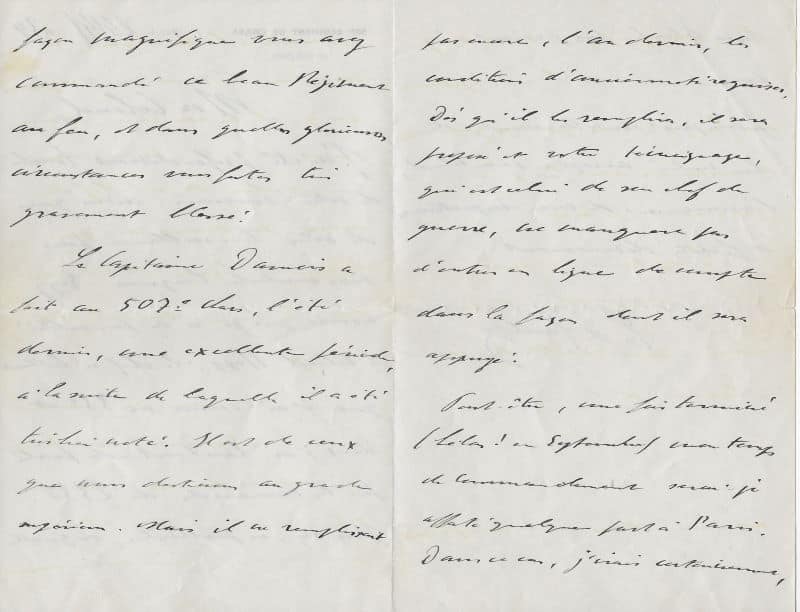 façon magnifique vous avez
commandé ce beau Régiment
au feu, et dans quelles glorieuses
circonstances vous fûtes très
gravement blessé.
Le Capitaine Damois a
fait au 507e chars, l'été
dernier, une excellente période,
à la suite de laquelle il a été
très bien noté. Il est de ceux
que nous destinons au grade
supérieur. Mais il ne remplissait
pas encore, l'an dernier, les
conditions d'ancienneté requises.
Dès qu'il les remplira, il sera
proposé et votre témoignage,
qui est celui de son chef de
guerre, ne manquera pas
d'entrer en ligne de compte
dans la façon dont il sera
appuyé.
Peut-être, une fois terminé
(hélas ! en Septembre) mon temps
de commandement serai-je
affecté quelque part à Paris.
Dans ce cas, j'irais certainement,